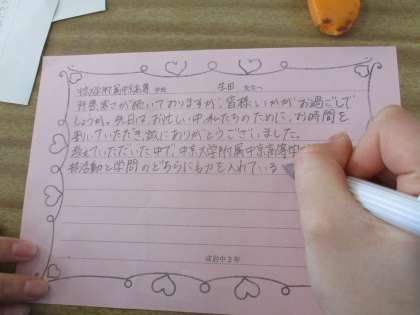 中京大学附属中京高等学校 生田先生へ
まだまだ寒さが続いておりますが、皆様いかがお過ごしで
しょうか。先日は、お忙しい中、私たちのために、お時間を
割いていただき、誠にありがとうございました。
教えていただいた中で、中京大学附属中京高等学
部活動と学問のどちらにも力を入れている